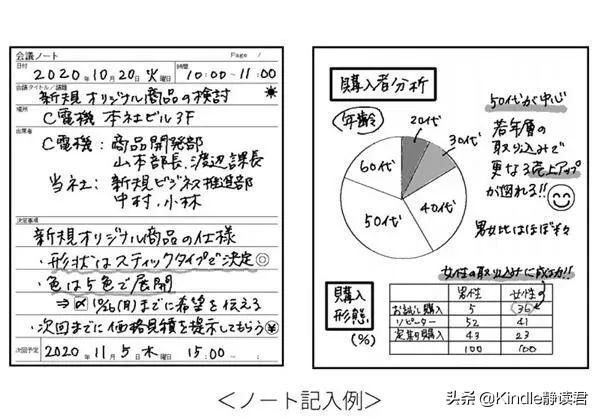 会議ノート Page /
日付 時間
2020年10月20日火曜日 10:00〜11:00
会議タイトル/議題
新規オリジナル商品の検討
場所
C電機 本社ビル3F
出席者
C電機:商品開発部
山本部長、渡辺課長
当社:新規ビジネス推進部
中村、小林
決定事項
新規オリジナル商品の仕様
・形状はスティックタイプで決定◎
・色は5色で展開
⇒〆10/26(月)までに希望を伝える
・次回までに価格見積を提示してもらう¥
次回予定
2020年11月5日木曜日 15:00〜:
購入者分析
年齢
20代
30代
40代
50代
60代
50代が中心
若年層の
取り込みで
更なる売上アップ
が図れる!!
男女比はほぼ
女性の取り込みに成功!!
購入
形態
(%)
男性 女性
お試し購入 5 36
リピーター 52 41
定期購入 43 23
100 100
<ノート記入例>
头条 @Kindle静读君